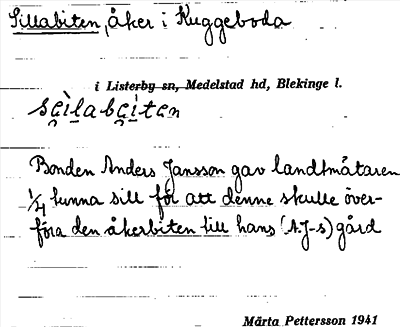 Sillabiten, åker i Kuggeboda
i Listerby sn, Medelstad hd, Blekinge l.
Bonden Anders Jansson gav landtmätaren
1/4 tunna sill för att denne skulle över-
föra den åkerbiten till hans (A.J-s) gård
Märta Pettersson 1941